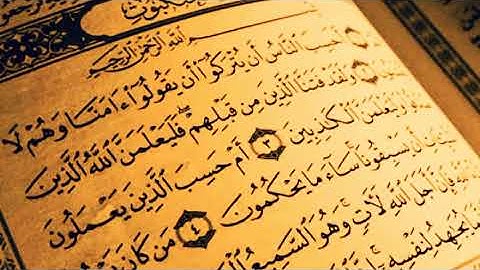 ٱللَّهِ ٱلرَّحْمَٰنِ ٱلرَّحِيمِ
أَحَسِبَ ٱلنَّاسُ أَن يُتْرَكُوٓا۟ أَن يَقُولُوٓا۟ ءَامَنَّا وَهُمْ لَا
وَلَقَدْ فَتَنَّا ٱلَّذِينَ مِن قَبْلِهِمْ ۖ فَلَيَعْلَمَنَّ ٱللَّهُ ٱلَّذِينَ
وَلَيَعْلَمَنَّ ٱلْكَٰذِبِينَ ٣ أَمْ حَسِبَ ٱلَّذِينَ يَعْمَلُونَ
أَن يَسْبِقُونَا سَآءَ مَا يَحْكُمُونَ ٤ مَن كَانَ
فَإِنَّ أَجَلَ ٱللَّهِ لَءَاتٍ وَهُوَ ٱلسَّمِيعُ
يُجَٰهِدُ لِنَفْسِهِ